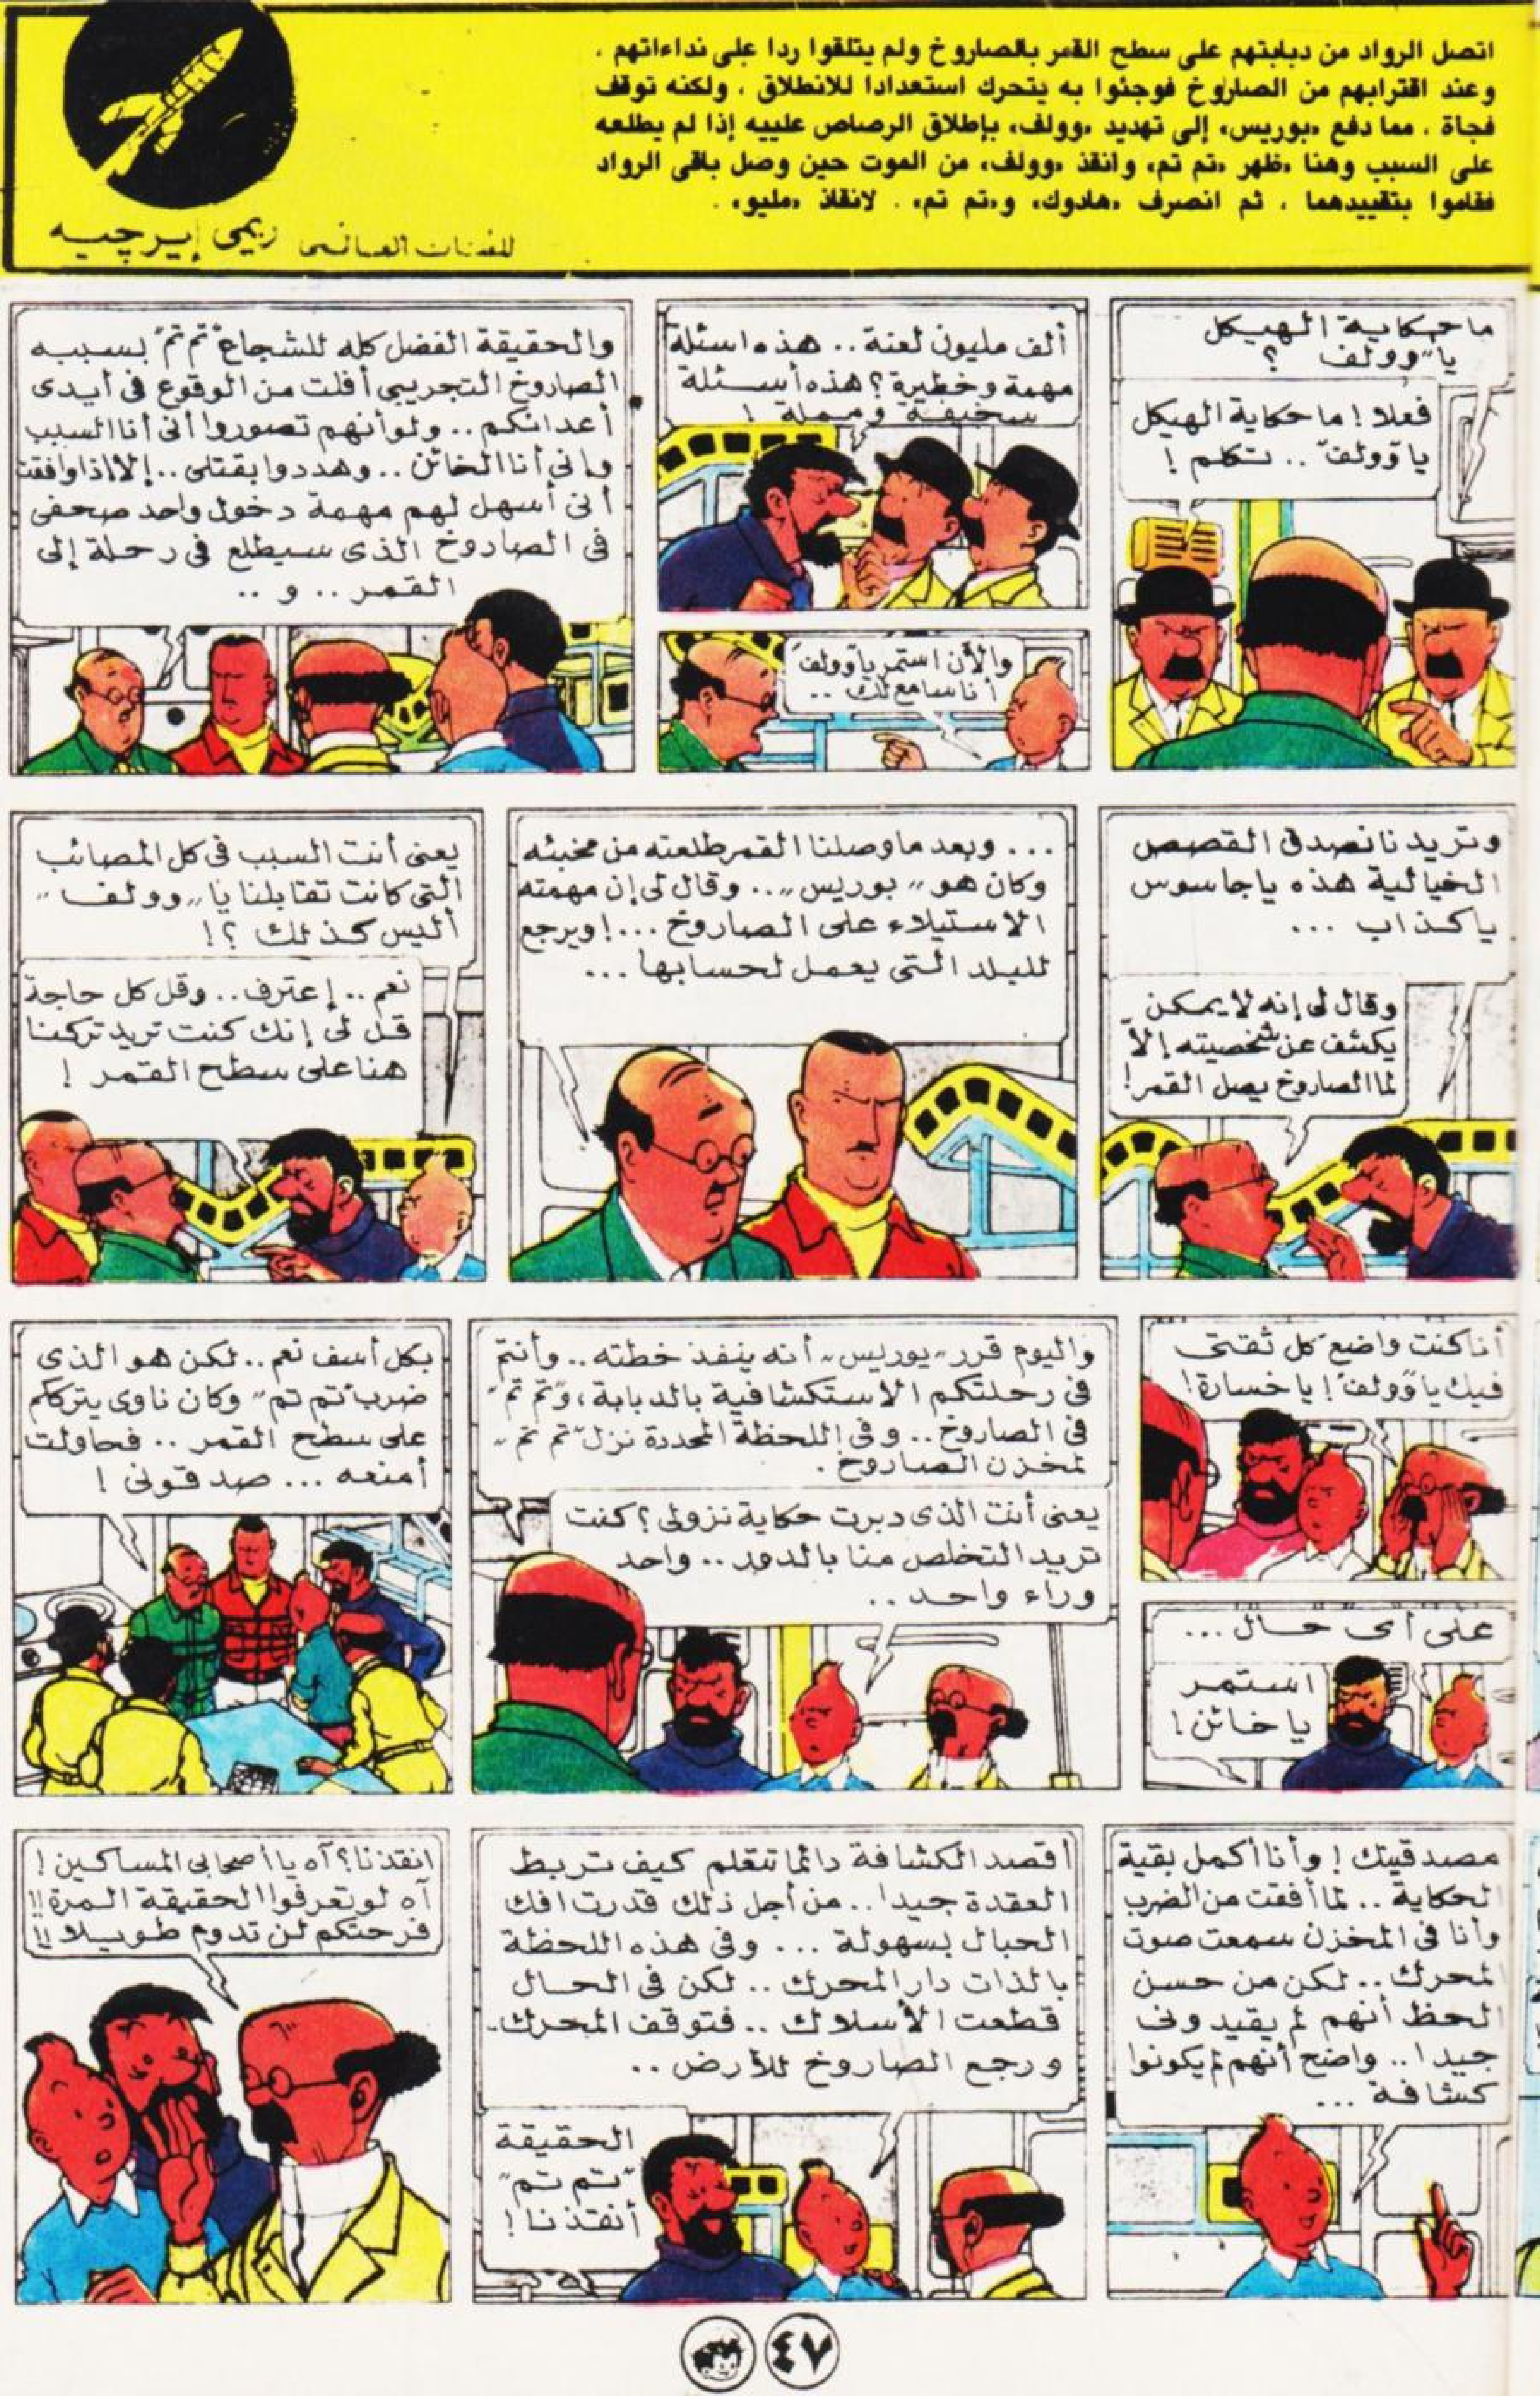 اتصل الرواد من دبابتهم على سطح القمر بالصاروخ ولم يتلقوا ردا على نداءاتهم .
وعند اقترابهم من الصاروخ فوجئوا به يتحرك استعدادا للانطلاق ، ولكنه توقف
فجاة ، مما دفع «بوريس» إلى تهديد «وولف» بإطلاق الرصاص علييه إذا لم يطلعه
على السبب وهنا «ظهر «تم تم» وانقذ «وولف» من الموت حين وصل باقى الرواد
فقاموا بتقييدهما ، ثم انصرف «هادوك» و«تم تم» . لانقاذ «مليو» .
للفنان العالمى ريمى إيرجيه
ما حكاية الهيكل
يا "وولف" ؟
فعلا ! ما حكاية الهيكل
يا "وولف" .. تكلم !
ألف مليون لعنة .. هذه اسئلة
مهمة وخطيرة ؟ هذه أسئلة
سخيفة ومملة !
والأن استمر يا "وولف"
أنا سامع لك ..
والحقيقة الفضل كله للشجاع "تم تم" بسببه
الصاروخ التجريبى أفلت من الوقوع فى أيدى
أعدائكم .. ولو أنهم تصوروا أنى أنا السبب
وإنى أنا الخائن .. وهددوا بقتلى .. إلا إذا وافقت
أنى أسهل لهم مهمة دخول واحد صحفى
فى الصاروخ الذى سيطلع فى رحلة إلى
القمر .. و ..
وتريدنا نصدق القصص
الخيالية هذه ياجاسوس
ياكذاب ...
وقال لى إنه لا يمكن
يكشف عن شخصيته إلا
لما الصاروخ يصل القمر !
... وبعد ما وصلنا القمر طلعته من مخبئه
وكان هو "بوريس" .. وقال لى إن مهمته
الاستيلاء على الصاروخ ... ! ويرجع
للبلد التى يعمل لحسابها ...
يعنى أنت السبب فى كل المصائب
التى كانت تقابلنا يا "وولف"
أليس كذلك ؟!
نعم .. إعترف .. وقل كل حاجة
قل لى إنك كنت تريد تركنا
هنا على سطح القمر !
أنا كنت واضع كل ثقتى
فيك يا "وولف" ! يا خسارة !
على أى حال ...
استمر
يا خائن !
واليوم قرر "بوريس" أنه ينفذ خطته .. وأنتم
فى رحلتكم الاستكشافية بالدبابة ، و"تم تم"
فى الصاروخ .. وفى اللحظة المحددة نزل "تم تم"
لمخزن الصاروخ .
يعنى أنت الذى دبرت حكاية نزولى ؟ كنت
تريد التخلص منا بالدور .. واحد
وراء واحد ..
بكل أسف نعم .. لكن هو الذى
ضرب "تم تم" وكان ناوى يترككم
على سطح القمر .. فحاولت
أمنعه ... صدقونى !
مصدقينك ! وأنا أكمل بقية
الحكاية .. لما أفقت من الضرب
وأنا فى المخزن سمعت صوت
لمحرك .. لكن من حسن
الحظ أنهم لم يقيدونى
جيدا .. واضح أنهم لم يكونوا
كشافة ...
أقصد الكشافة دائما تتعلم كيف تربط
العقدة جيدا .. من أجل ذلك قدرت افك
الحبال بسهولة ... وفى هذه اللحظة
بالذات دار المحرك .. لكن فى الحال
قطعت الأسلاك .. فتوقف المحرك
ورجع الصاروخ للأرض ..
الحقيقة
"تم تم"
أنقذنا !
انقذنا ؟ آه يا أصحابى المساكين !
آه لو تعرفوا الحقيقة المرة !!
فرحتكم لن تدوم طويلا !!
٤٧